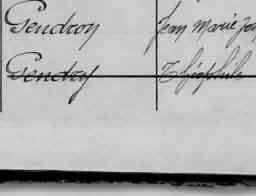 Gendron Jean Marie Jos
Gendry Théophile